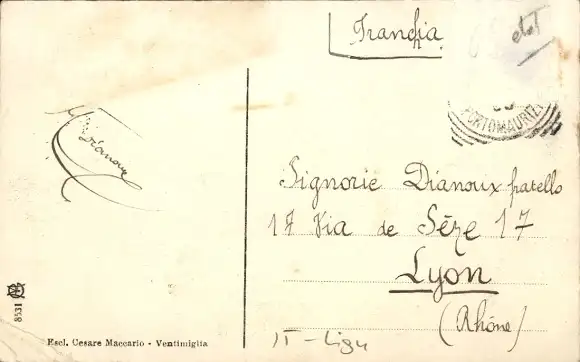 Francia
PORTOMAURIZI
Dianoux
Signorie Dianoux fratello
17 Via de Sèze 17
Lyon
(Rhône)
8531
Escl. Cesare Maccario - Ventimiglia
IT - Ligu